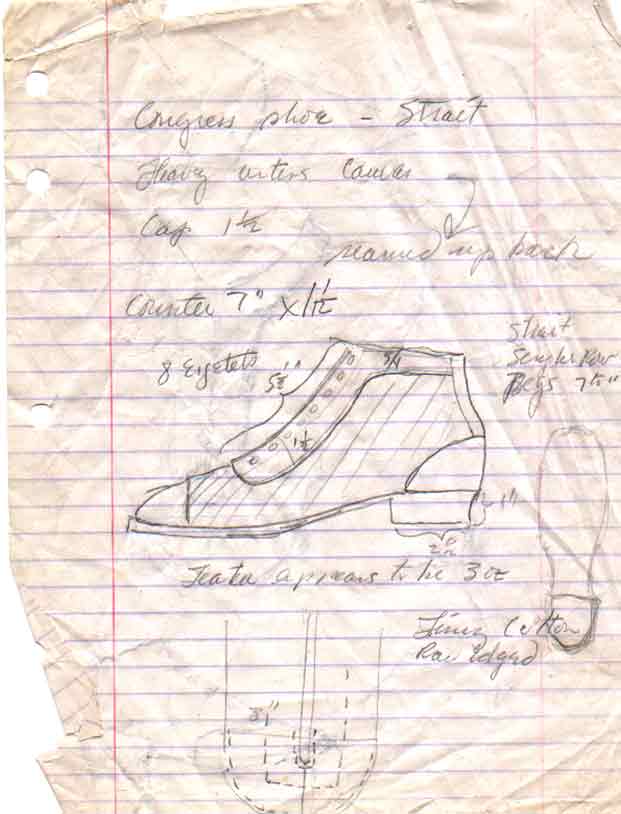 Congress shoe - Strait
Heavy Canvas
Cap 1 1/2
seamed up back
Counter 7" x 1 1/2
8 Eyelets
5 1/2"
3/4
1 1/2
Strait
Single Row
Pegs 7 1/2"
1"
appears to be 3 oz
Cotton
Raw Edged
3"